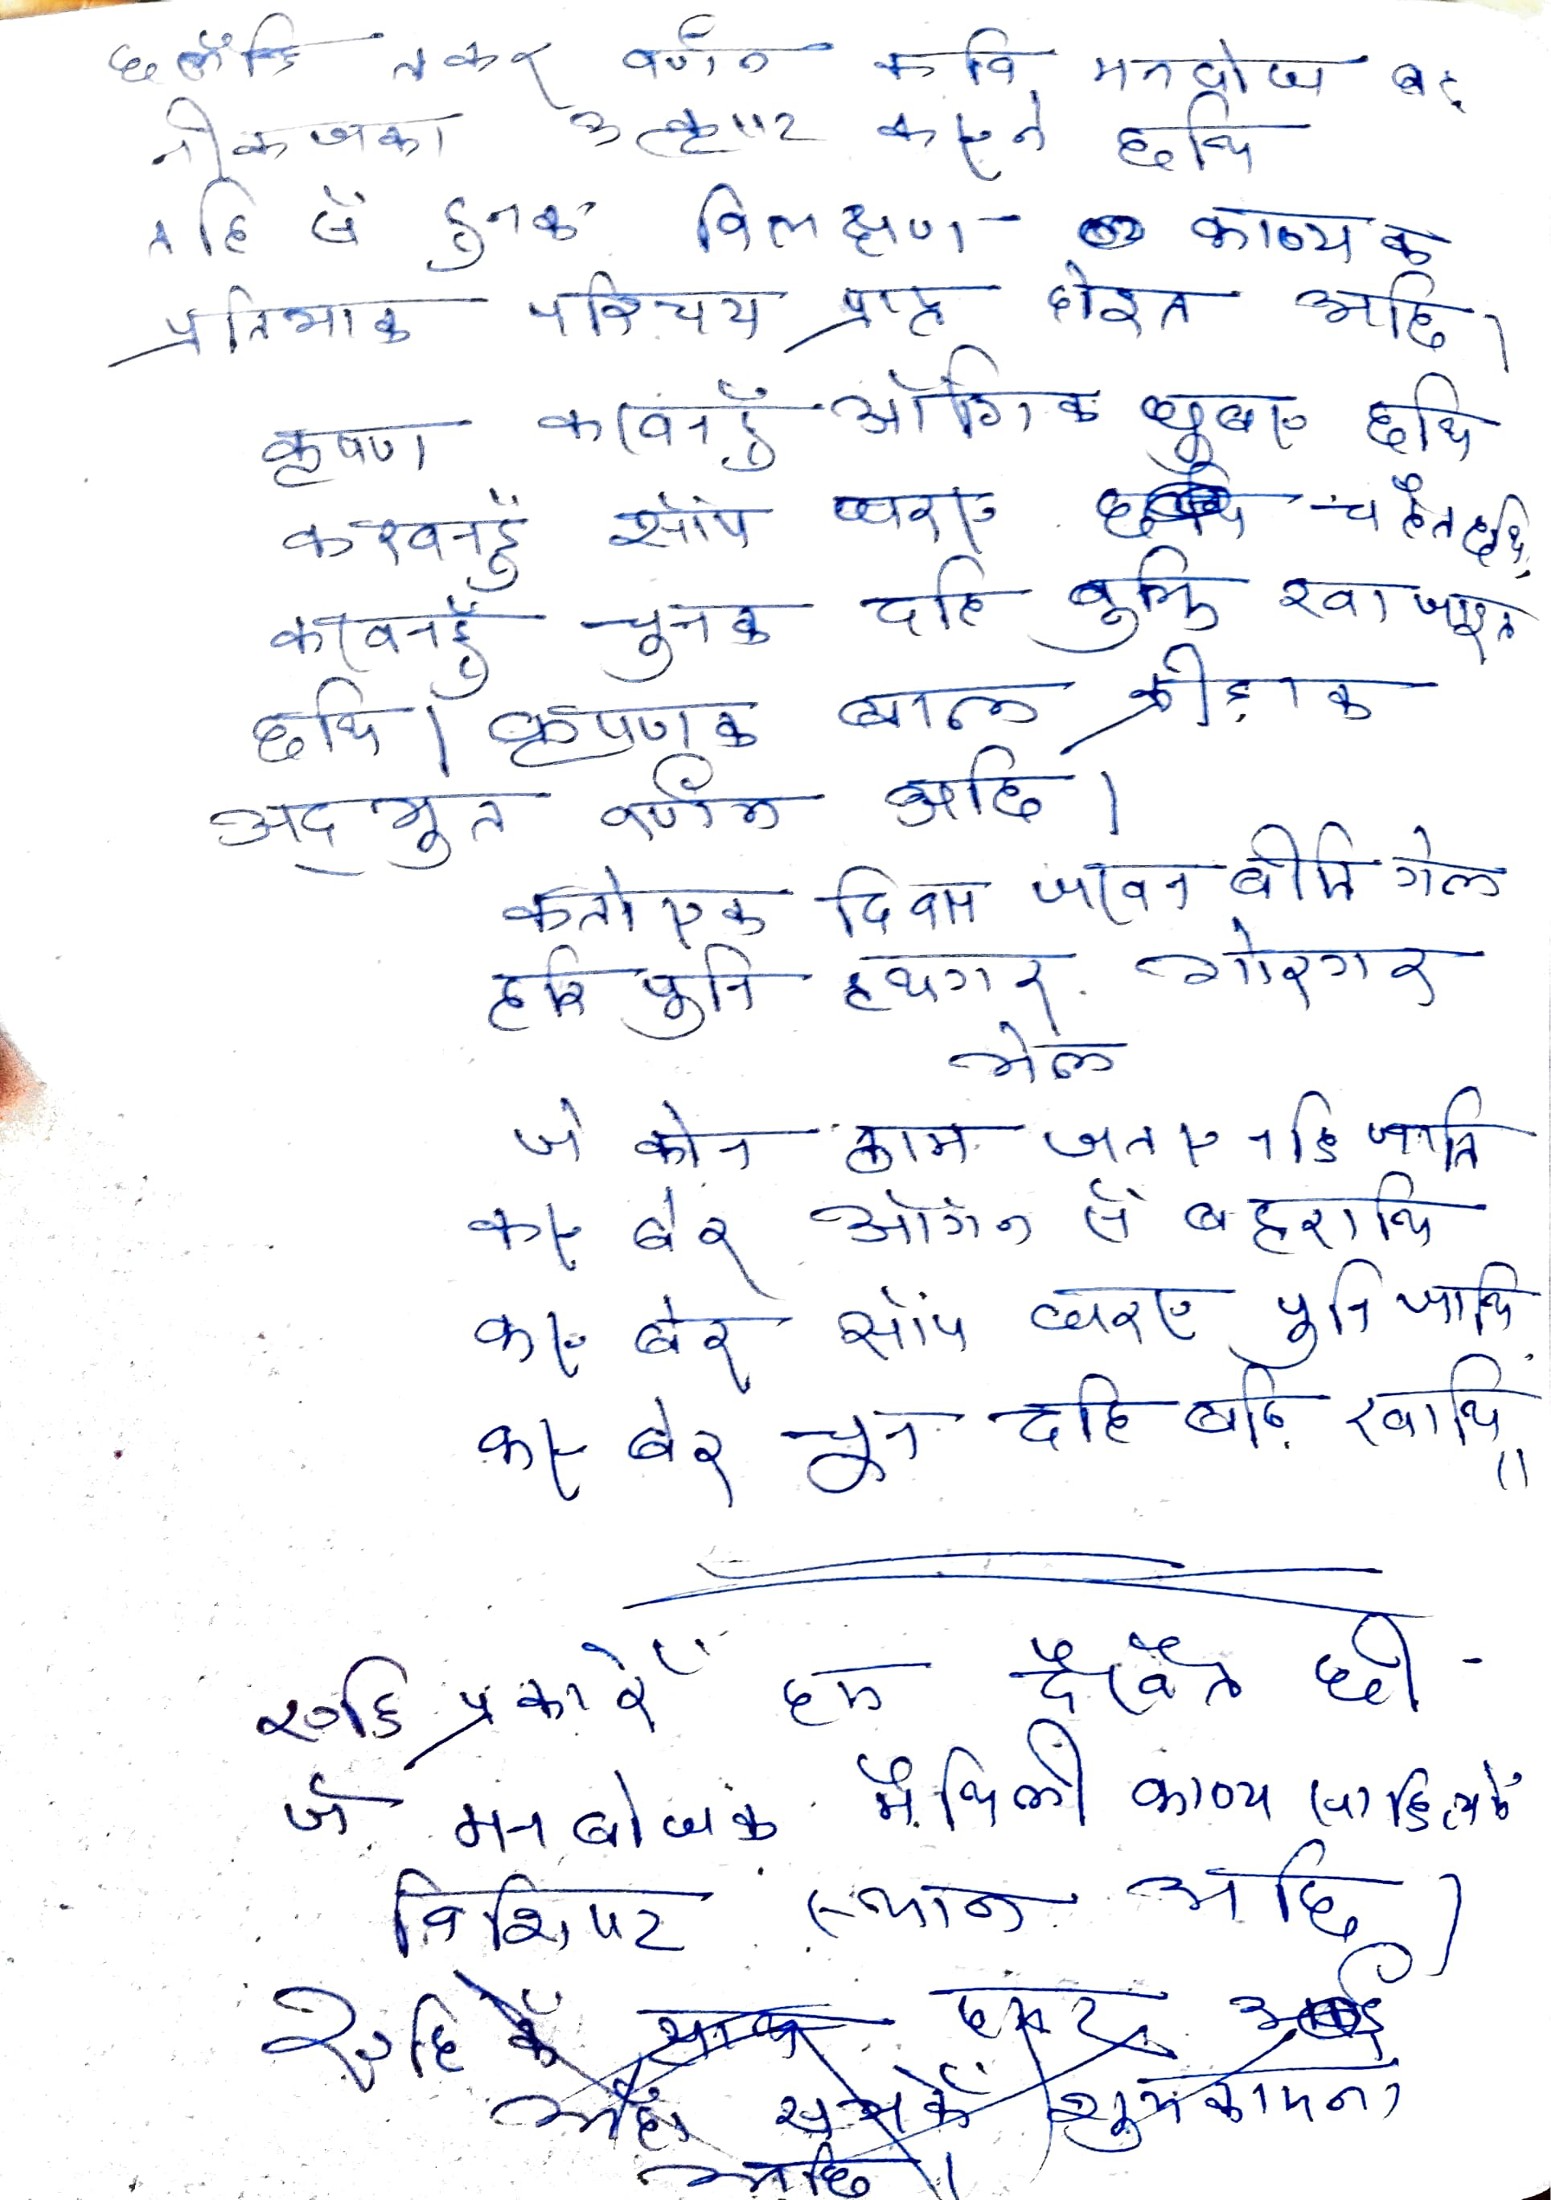 छलैन्हि तकर वर्णन कवि मनबोध बड़
नीकजकाँ उत्कृष्ट कएने छथि
तहि सँ हुनक विलक्षण - काव्यक
प्रतिभाक परिचय प्राप्त होइत अछि।
कृष्ण कखनहुँ आँगिक छुबए छथि
कखनहुँ साँप धरए चहैत छथि,
कखनहुँ चुनक दहि बुझि खा जाइत
छथि। कृष्णक बाल क्रीड़ाक
अद्भुत वर्णन अछि।
कतोएक दिवस जखन बीति गेल
हरि पुनि हथगर गोरगर
भेल
जे कोन ठाम जतए नहि जाति
कए बेर आँगन सँ बहराथि
कए बेर साँप धरए पुनि जाथि
कए बेर चून दहि बदि खाथि॥
एहि प्रकारेँ हम देखैत छी -
जे मनबोधक मैथिली काव्य साहित्यमे
विशिष्ट स्थान अछि।
एहिकेँ साथ हमर
अहाँ सभकेँ शुभकामना
अछि॥